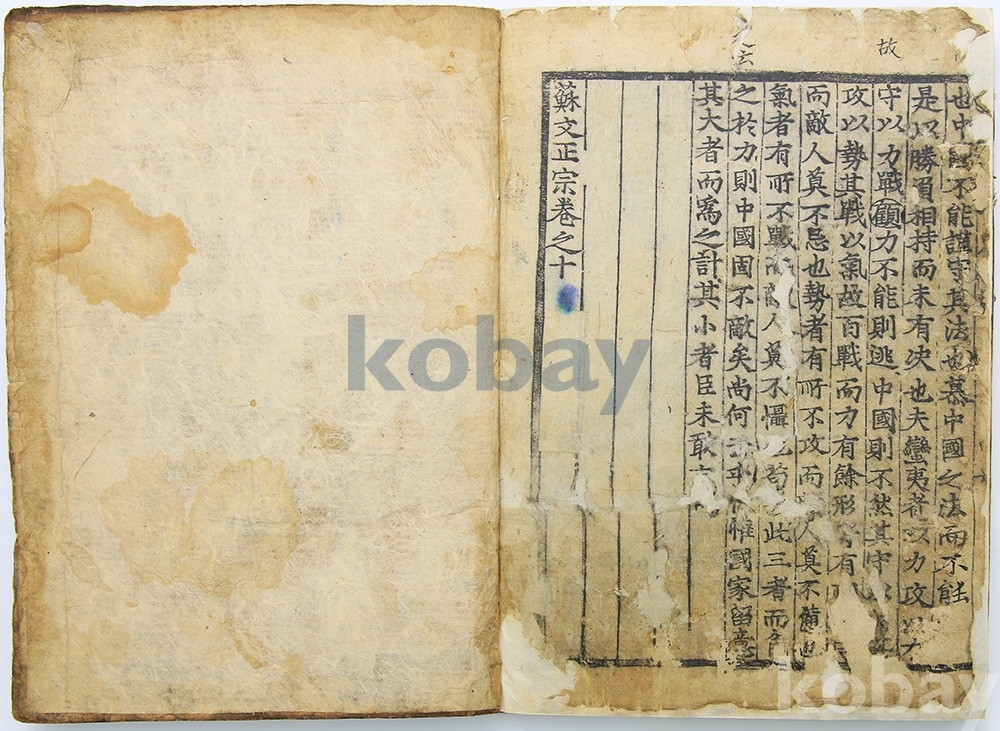 故
云
也中不能謹守其法也慕中國之法而不能
是以勝負相持而未有决也夫蠻夷者以力攻以力
守以力戰顧力不能則逃中國則不然其守
攻以勢其戰以氣故百戰而力有餘形有
而敵人莫不忌也勢者有所不攻而人莫不憊也
氣者有所不戰而人莫不懾此三者而角
之於力則中國固不敵矣尚何惟國家留意
其大者而爲之計其小者臣未敢
蘇文正宗卷之十
kobay
kobay